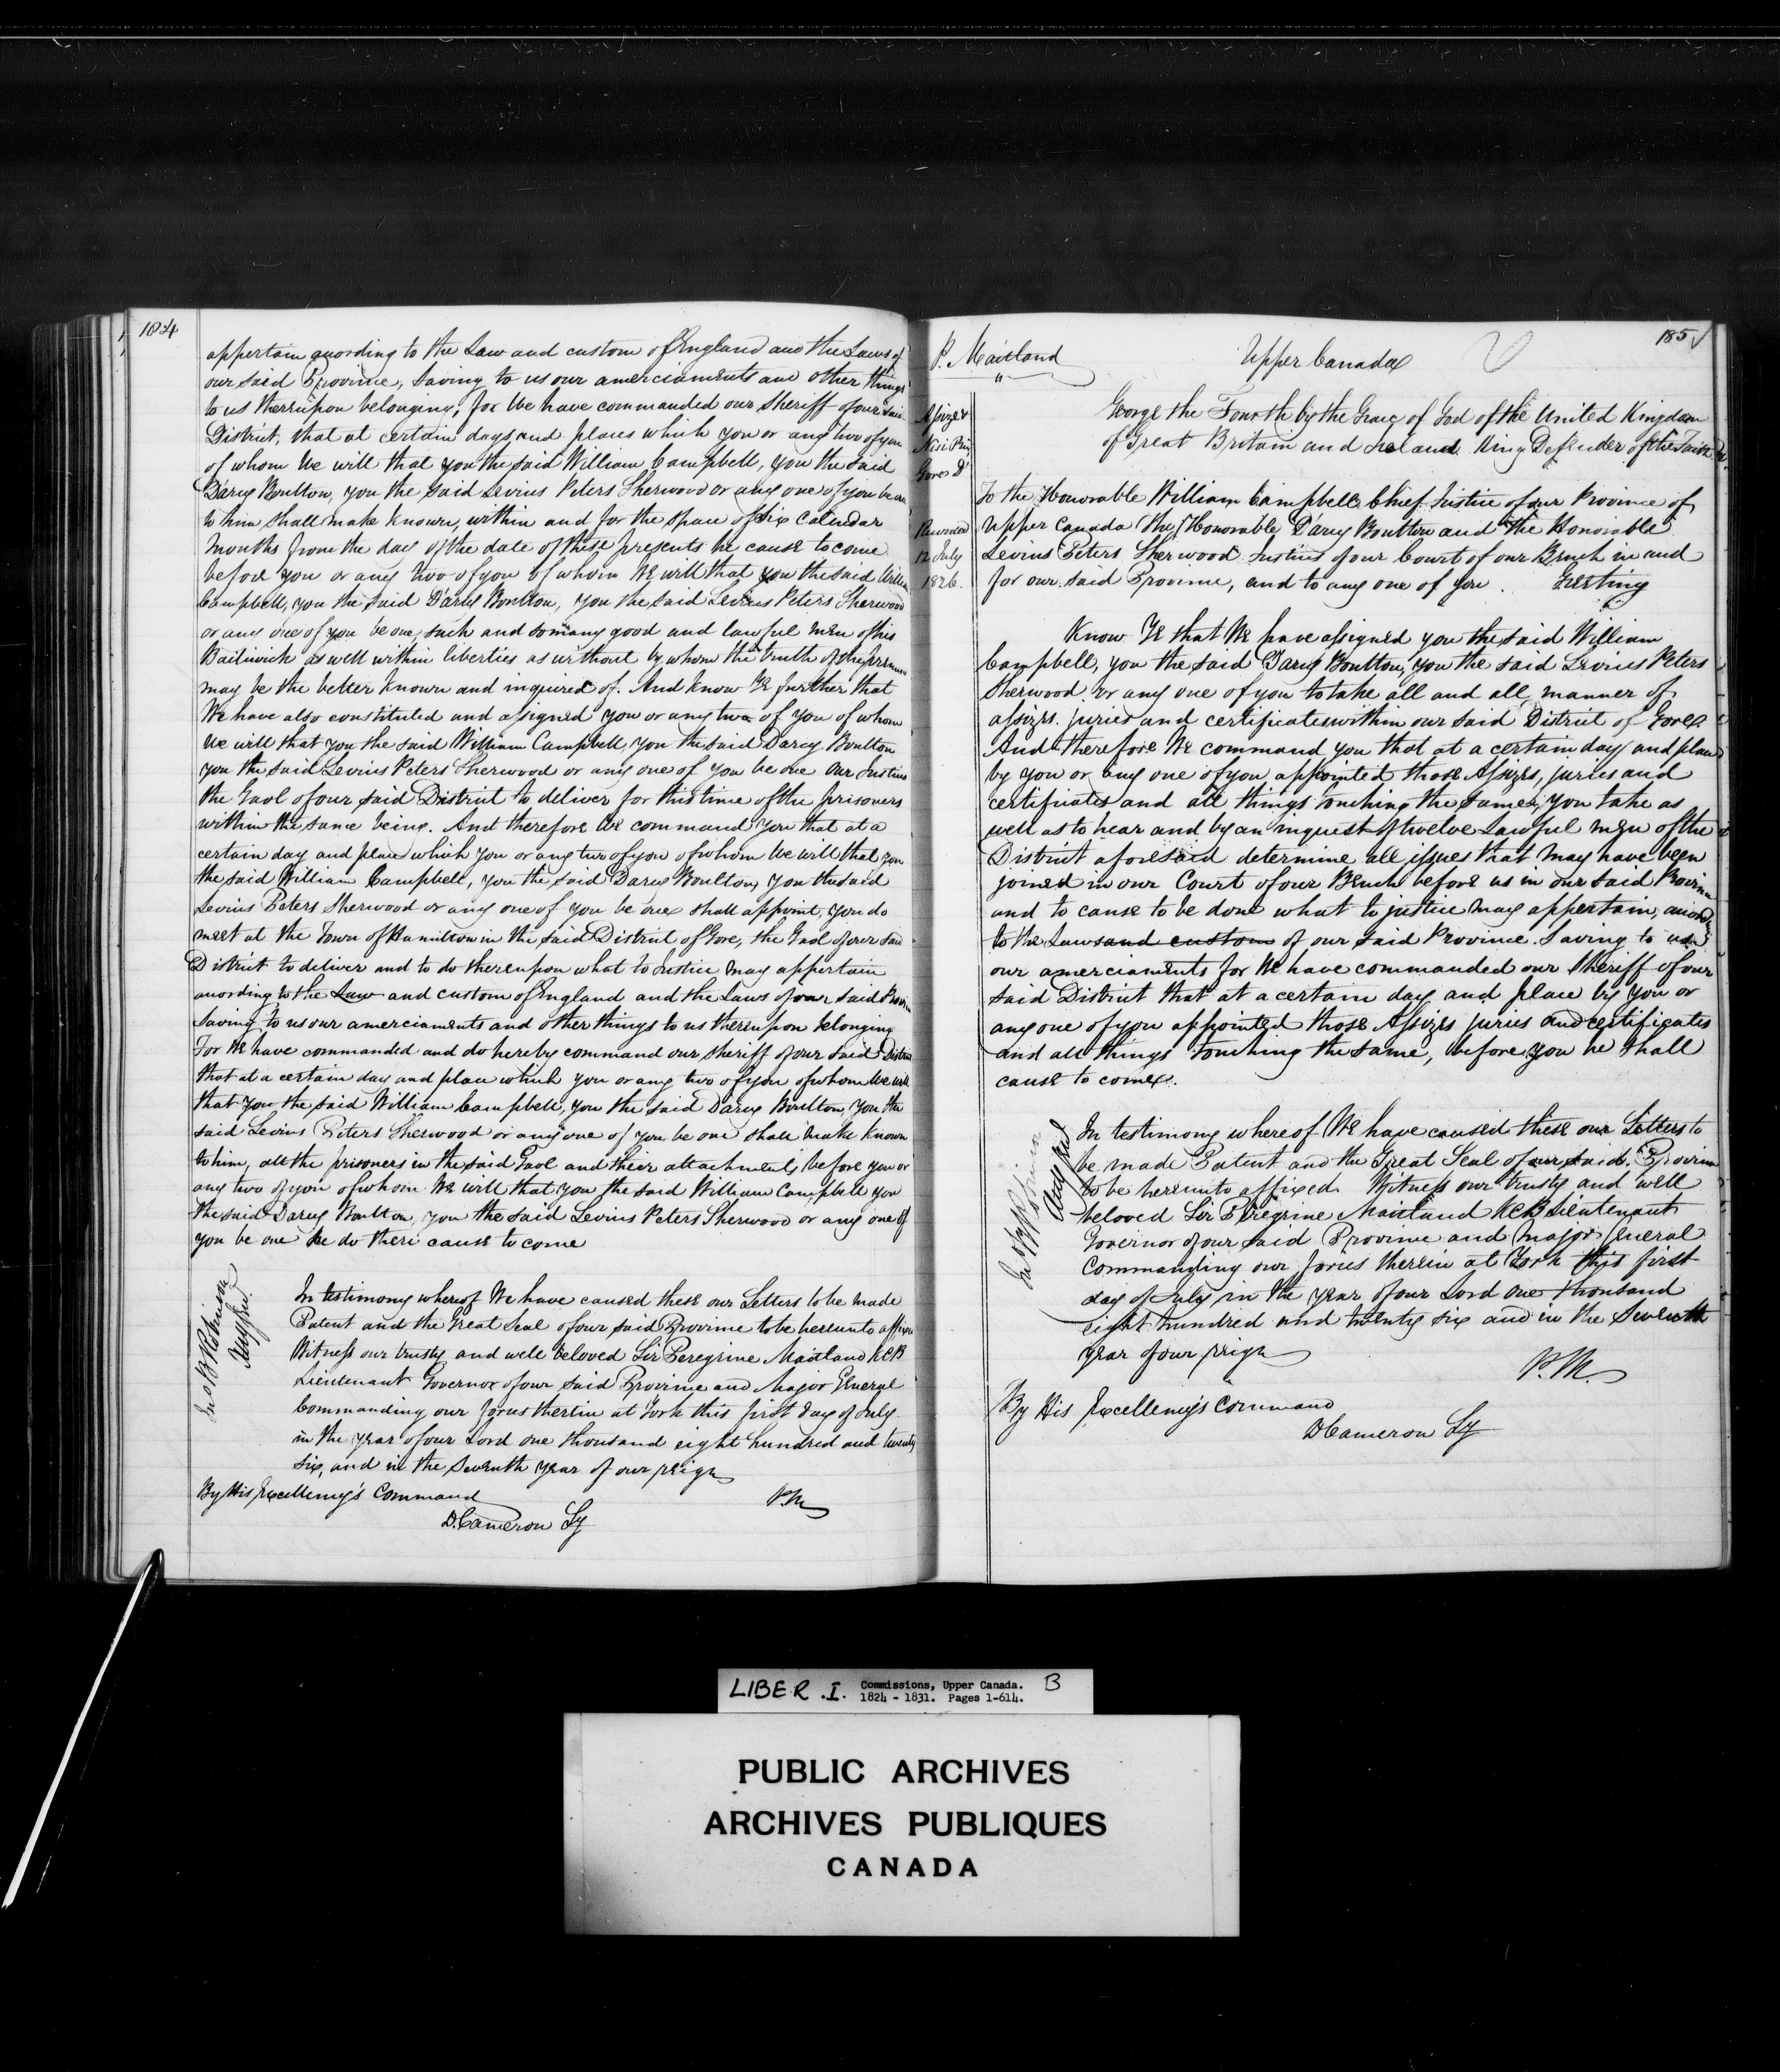 184
appertain according to the Law and custom of England and the Laws of
our said Province, Saving to us our amerciaments and other things
to us thereupon belonging, for We have commanded our Sheriff of our said
District, that at certain days and places which you or any two of you
of whom We will that you the said William Campbell, you the said
D'arcy Boulton, you the said Levius Peters Sherwood or any one of you be one
to him shall make known, within and for the space of six Calendar
months from the day of the date of these presents he cause to come
before you or any two of you of whom We will that you the said William
Campbell, you the said D'arcy Boulton, you the said Levius Peters Sherwood
or any one of you be one, such and so many good and lawful men of his
Bailiwick as well within liberties as without by whom the truth of the premises
may be the better known and inquired of. And Know Ye further that
We have also constituted and assigned you or any two of you of whom
We will that you the said William Campbell, you the said Darcy Boulton
you the said Levius Peters Sherwood or any one of you be one Our Justices
the Gaol of our said District to deliver for this time of the prisoners
within the same being. And therefore We command you that at a
certain day and place which you or any two of you of whom We will that you
the said William Campbell, you the said Darcy Boulton, you the said
Levius Peters Sherwood or any one of you be one shall appoint, you do
meet at the Town of Hamilton in the said District of Gore, the Gaol of our said
District to deliver and to do thereupon what to Justice may appertain
according to the Law and custom of England and the Laws of our said Province
Saving to us our amerciaments and other things to us thereupon belonging
For We have commanded and do hereby command our Sheriff of our said District
that at a certain day and place which you or any two of you of whom We will
that you the said William Campbell, you the said Darcy Boulton, you the
said Levius Peters Sherwood or any one of you be one shall make known
to him, all the prisoners in the said Gaol and their attachments before you or
any two of you of whom We will that you the said William Campbell you
the said Darcy Boulton, you the said Levius Peters Sherwood or any one of
you be one he do there cause to come
Jno B Robinson
Atty Gen.
In testimony whereof We have caused these our Letters to be made
Patent and the Great Seal of our said Province to be hereunto affixed
Witness our trusty and well beloved Sir Peregrine Maitland KCB
Lieutenant Governor of our said Province and Major General
Commanding our forces therein at York this first day of July
in the year of our Lord one thousand eight hundred and twenty
six, and in the Seventh year of our reign
By His Excellency's Command
P.M
D. Cameron Sy
185
P. Maitland
Upper Canada
Assize &
Nisi Pri
Gore D
Recorded
12 July
1826.
George the Fourth by the Grace of God of the United Kingdom
of Great Britain and Ireland King Defender of the Faith &c.
To the Honorable William Campbell Chief Justice of our Province of
Upper Canada The Honorable D'arcy Boulton and the Honorable
Levius Peters Sherwood Justices of our Court of our Bench in and
for our said Province, and to any one of you. Greeting
Know Ye that We have assigned you the said William
Campbell, you the said Darcy Boulton, you the said Levius Peters
Sherwood or any one of you to take all and all manner of
assizes. juries and certificates within our said District of Gore.
And therefore We command you that at a certain day and place
by you or any one of you appointed those Assizes, juries and
certificates and all things touching the same, you take as
well as to hear and by an inquest of twelve Lawful men of the
District aforesaid determine all issues that may have been
joined in our Court of our Bench before us in our said Province
and to cause to be done what to justice may appertain, according
to the Laws and custom of our said Province. Saving to us
our amerciaments for We have commanded our Sheriff of our
said District that at a certain day and place by you or
any one of you appointed those Assizes juries and certificates
and all things touching the same, before you he shall
cause to come.
Jno B Robinson
Atty Gen
In testimony whereof We have caused these our Letters to
be made Patent and the Great Seal of our said Province
to be hereunto affixed. Witness our trusty and well
beloved Sir Peregrine Maitland KCB Lieutenant
Governor of our said Province and Major General
Commanding our forces therein at York this first
day of July in the year of our Lord one thousand
eight hundred and twenty six and in the Seventh
year of our reign
P.M.
By His Excellency's Command
D Cameron Sy
LIBER .I. Commissions, Upper Canada. B
1824 - 1831. Pages 1-614.
PUBLIC ARCHIVES
ARCHIVES PUBLIQUES
CANADA